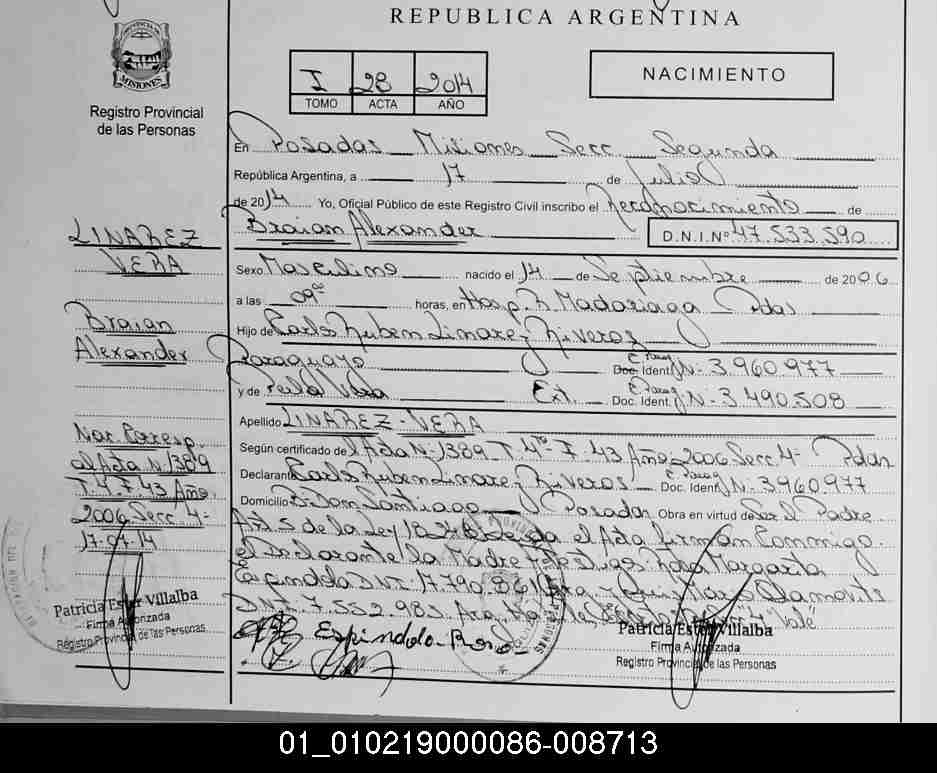 REPUBLICA ARGENTINA
PROVINCIA DE
MISIONES
Registro Provincial
de las Personas
I 28 2014
TOMO ACTA AÑO
NACIMIENTO
En Posadas Misiones Secc. Segunda
República Argentina, a 17 de Julio
de 2014 Yo, Oficial Público de este Registro Civil inscribo el Reconocimiento de
Braian Alexander D.N.I.Nº 47.533.590
Sexo Masculino nacido el 14 de Septiembre de 2006
a las 09 horas, en Hosp. R. Madariaga Pdas
Hijo de Carls Ruben Linarez Riveros
Paraguayo Doc. Ident. Nº 3.960.977
y de Perla Vera Ext. Doc. Ident. Nº 3.490.508
Apellido LINAREZ - VERA
Según certificado de l Acta Nº 1389 T. 4to F. 43 Año 2006 Secc 4ª Pdas
Declarante Carls Ruben Linarez Riveros Doc. Ident. Nº 3.960.977
Domicilio Bº Don Santiago Posadas Obra en virtud de Ser el Padre
Art. 5 de la Ley 18.248 el Acta Firman Conmigo
el Declarante la Madre Testigos Rosa Margarita
Espindola DNI. 17.790.861 y Luis Mario
D.N.I. 7.552.983 "Vale"
Espindola Rosa
Patricia Ester Villalba
Firma Autorizada
Registro Provincial de las Personas
LINAREZ
VERA
Braian
Alexander
Nac. Corresp.
al Acta Nº 1389
T. 4 F. 43 Año
2006 Secc 4ª
17-07-14
Patricia Ester Villalba
Firma Autorizada
Registro Provincial de las Personas
01_010219000086-008713